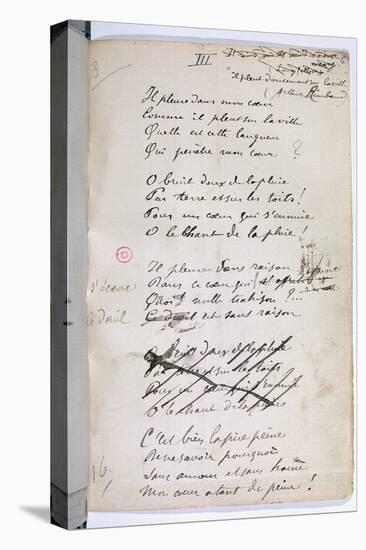 III
3
"il pleut doucement sur la ville"
(Arthur Rimbaud)
Il pleure dans mon cœur
Comme il pleut sur la ville
Quelle est cette langueur
Qui pénètre mon cœur ?
O bruit doux de la pluie !
Par terre et sur les toits !
Pour un cœur qui s'ennuie
O le chant de la pluie !
D
Il pleure sans raison
Dans ce cœur qui
Quoi ! nulle trahison ?...
Ce deuil est sans raison
s'écœure
Ce deuil
O bruit doux de la pluie
Par terre et sur les toits
Pour un cœur qui s'ennuie
O le chant de la pluie
C'est bien la pire peine
De ne savoir pourquoi
Sans amour et sans haine
Mon cœur a tant de peine !
16